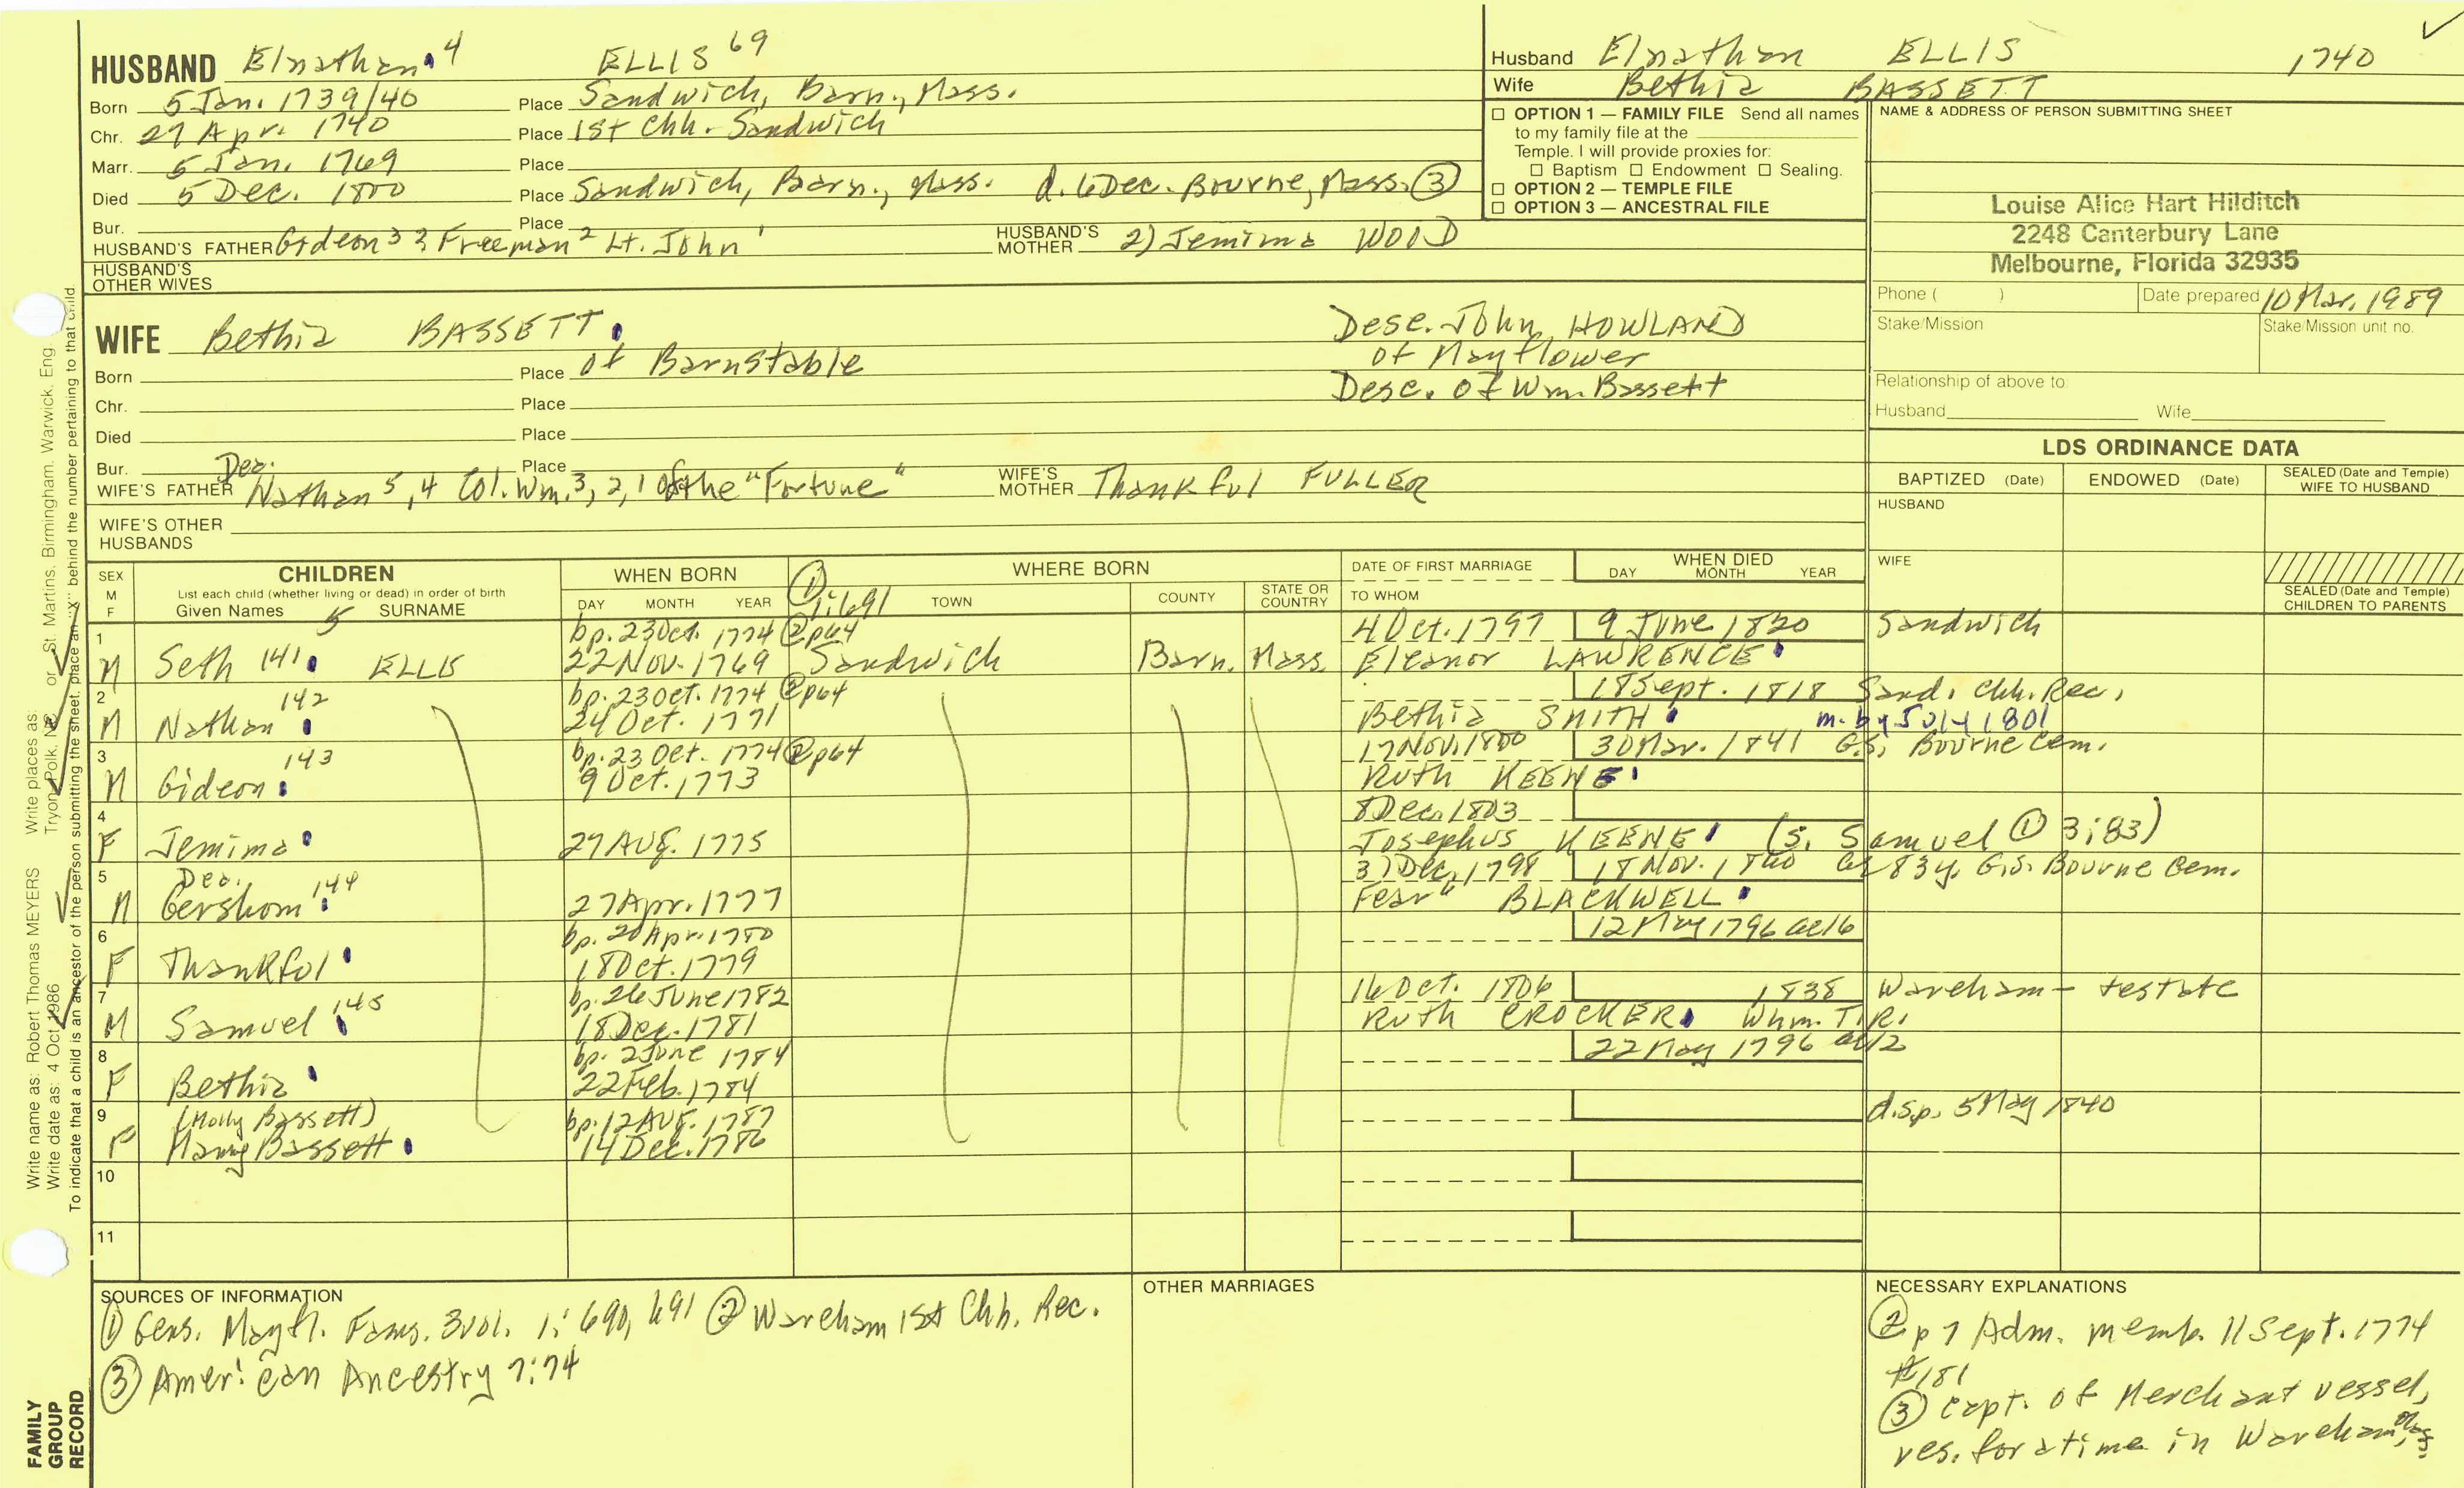 HUSBAND Elnathan 4 ELLIS 69
Born 5 Jan. 1739/40 Place Sandwich, Barn., Mass.
Chr. 27 Apr. 1740 Place 1st Chh. Sandwich
Marr. 5 Jan. 1769 Place
Died 5 Dec. 1800 Place Sandwich, Barn., Mass. d. 6 Dec. Bourne, Mass. ③
Bur. Place
HUSBAND'S FATHER Gideon 3 Freeman 2 Lt. John 1 HUSBAND'S MOTHER 2) Jemima WOOD
HUSBAND'S OTHER WIVES
Husband Elnathan ELLIS 1740
Wife Bethia BASSETT
☐ OPTION 1 — FAMILY FILE Send all names
to my family file at the
Temple. I will provide proxies for:
☐ Baptism ☐ Endowment ☐ Sealing.
☐ OPTION 2 — TEMPLE FILE
☐ OPTION 3 — ANCESTRAL FILE
NAME & ADDRESS OF PERSON SUBMITTING SHEET
Louise Alice Hart Hilditch
2248 Canterbury Lane
Melbourne, Florida 32935
Phone ( ) Date prepared 10 Mar. 1989
Stake/Mission Stake/Mission unit no.
Relationship of above to:
Husband Wife
WIFE Bethia BASSETT
Born Place of Barnstable
Chr. Place
Died Place
Bur. Place
Desc. John HOWLAND
of Mayflower
Desc. of Wm. Bassett
Dea.
WIFE'S FATHER Nathan 5, 4 Col. Wm. 3, 2, 1 of the "Fortune" WIFE'S MOTHER Thankful FULLER
WIFE'S OTHER HUSBANDS
LDS ORDINANCE DATA
BAPTIZED (Date) ENDOWED (Date) SEALED (Date and Temple) WIFE TO HUSBAND
HUSBAND
WIFE
SEALED (Date and Temple) CHILDREN TO PARENTS
SEX M F
CHILDREN
List each child (whether living or dead) in order of birth
Given Names 5 SURNAME
WHEN BORN
DAY MONTH YEAR
① 1:691
WHERE BORN
TOWN COUNTY STATE OR COUNTRY
DATE OF FIRST MARRIAGE
TO WHOM
WHEN DIED
DAY MONTH YEAR
1 bp. 23 Oct. 1774 ② p64 4 Oct. 1797 9 June 1820 Sandwich
M Seth 141 ELLIS 22 Nov. 1769 Sandwich Barn. Mass. Eleanor LAWRENCE
2 142 bp. 23 Oct. 1774 ② p64 18 Sept. 1818 Sand. Chh. Rec.
M Nathan 24 Oct. 1771 Bethia SMITH m. by July 1801
3 143 bp. 23 Oct. 1774 ② p64 17 Nov. 1800 30 Mar. 1841 G.S. Bourne Cem.
M Gideon 9 Oct. 1773 Ruth KEENE
4 8 Dec. 1803
F Jemima 27 Aug. 1775 Josephus KEENE (s. Samuel ① 3:83)
5 Dea. 144 31 Dec. 1798 18 Nov. 1860 ae 83y. G.S. Bourne Cem.
M Gershom 27 Apr. 1777 Fear BLACKWELL
6 bp. 20 Apr. 1780 12 May 1796 ae 16
F Thankful 18 Oct. 1779
7 145 bp. 26 June 1782 16 Oct. 1806 1838 Wareham - testate
M Samuel 18 Dec. 1781 Ruth CROCKER Whm. T.R.
8 bp. 2 June 1784 22 May 1796 ae 12
F Bethia 22 Feb. 1784
9 (Molly Bassett) bp. 12 Aug. 1787 d.s.p. 5 May 1840
F Bassett 14 Dec. 1786
10
11
SOURCES OF INFORMATION
① Gens. Mayfl. Fams. 3 vol. 1: 690, 691 ② Wareham 1st Chh. Rec.
③ American Ancestry 7:74
OTHER MARRIAGES
NECESSARY EXPLANATIONS
② p 7 Adm. memb. 11 Sept. 1774
#181
③ Capt. of Merchant vessel,
res. for a time in Wareham,
Write name as: Robert Thomas MEYERS Write places as: Tryon, Polk, NC or St. Martins, Birmingham, Warwick, Eng
Write date as: 4 Oct 1986
To indicate that a child is an ancestor of the person submitting the sheet, place an "X" behind the number pertaining to that child.
FAMILY
GROUP
RECORD